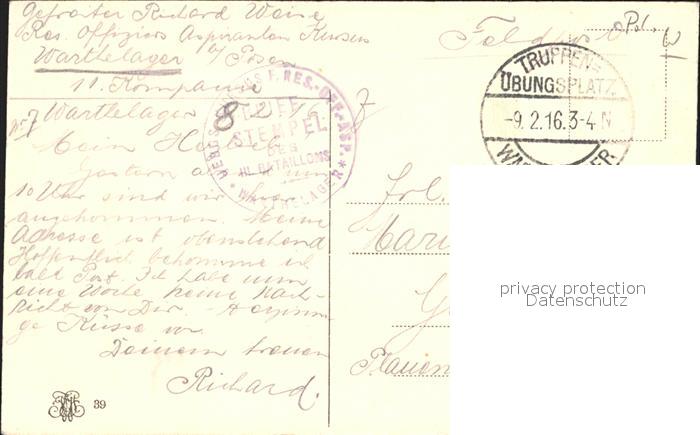 Gefreiter Richard Weise
Res. Offiziers Aspiranten Kursus
Warthelager b/ Posen
11. Kompanie
Feldpost
TRUPPEN-
ÜBUNGSPLATZ
-9.2.16.3-4 N
WA ER
F. RES.-OFF.-ASP.
STEMPEL
DES
III. BATAILLONS
WARTHELAGER
No 7 Warthelager 8. 2. 16
Mein Herzel
Gestern abend um
10 Uhr sind wir hier
angekommen. Meine
Adresse ist obenstehend
Hoffentlich bekomme ich
bald Post. Ich habe nun
eine Woche keine Nach-
richt von Dir.
ge Küsse von
Deinem treuen
Richard.
Frl.
Mari
G
Plauen
privacy protection
Datenschutz
39